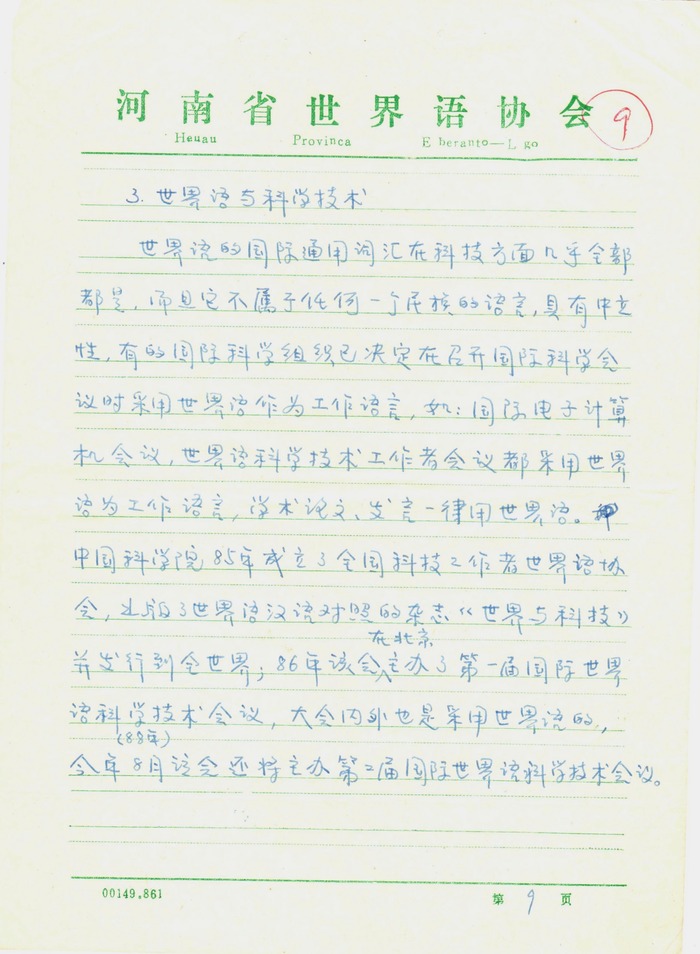 河南省世界语协会
9
Heuau Provinca E beranto—L go
3. 世界语与科学技术
世界语的国际通用词汇在科技方面几乎全部
都是，而且它不属于任何一个民族的语言，具有中立
性，有的国际科学组织已决定在召开国际科学会
议时采用世界语作为工作语言，如：国际电子计算
机会议，世界语科学技术工作者会议都采用世界
语为工作语言，学术论文、发言一律用世界语。
中国科学院85年成立了全国科技工作者世界语协
会，出版了世界语汉语对照的杂志《世界与科技》
在北京
并发行到全世界；86年该会主办了第一届国际世界
语科学技术会议，大会内外也是采用世界语的，
(88年)
今年8月该会还将主办第二届国际世界语科学技术会议。
00149.861
第 9 页